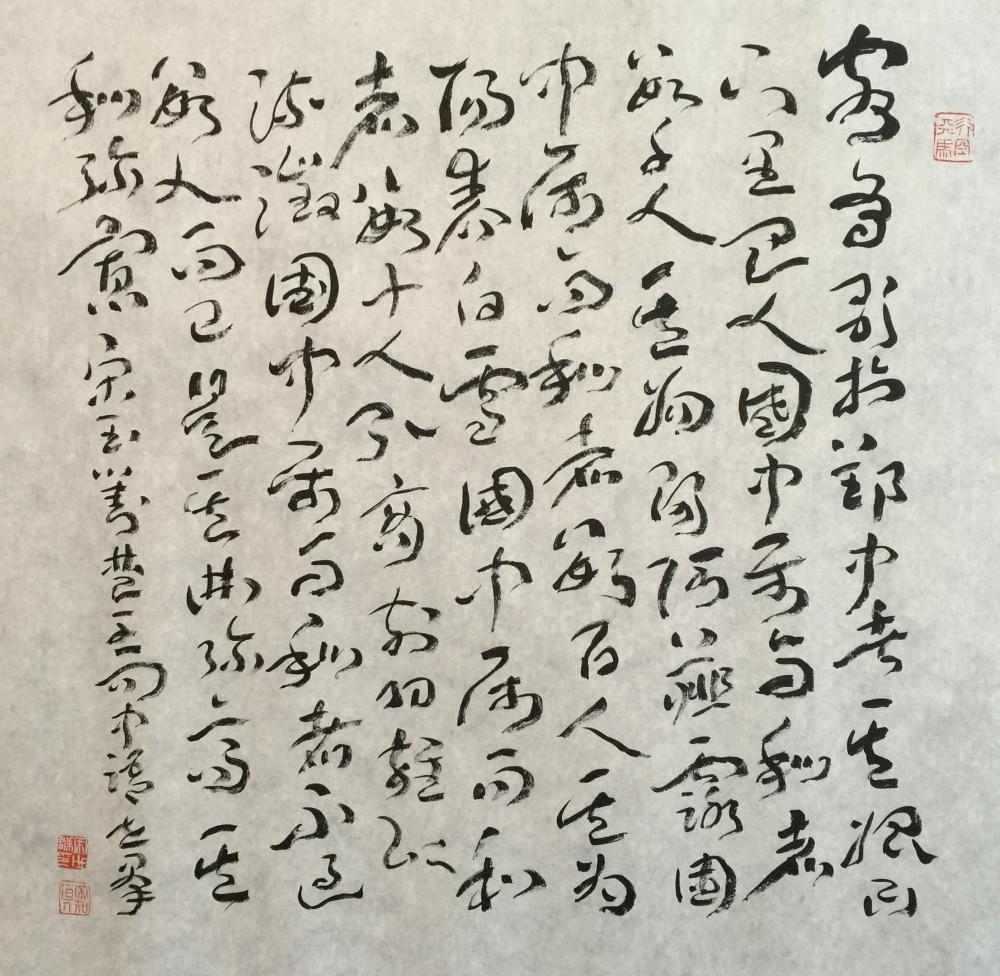 客有歌於郢中者其始曰
下里巴人國中屬而和者
數千人其為陽阿薤露國
中屬而和者數百人其為
陽春白雪國中屬而和
者數十人引商刻羽雜以
流徵國中屬而和者不過
數人而已是其曲彌高其
和彌寡宋玉對楚王問中語